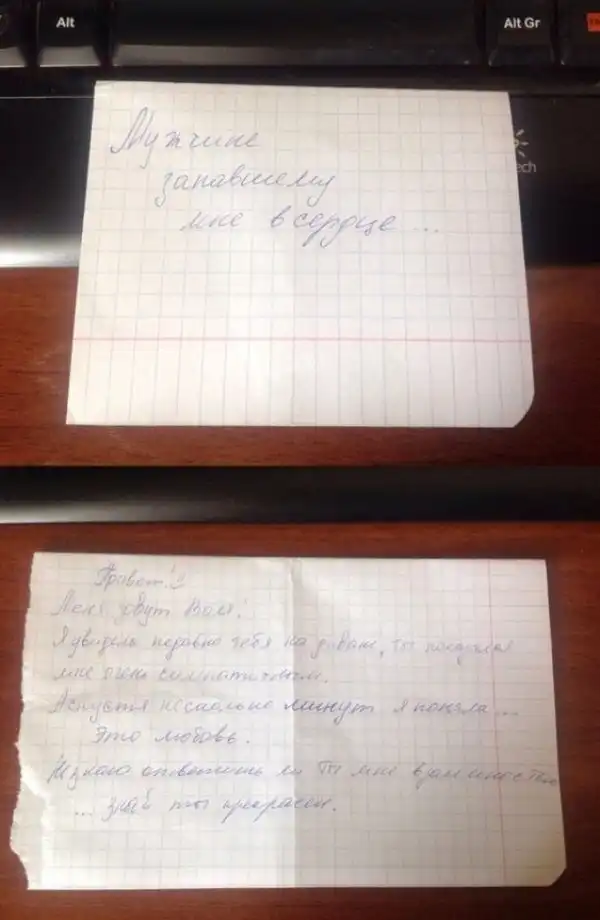 Alt
Alt Gr
ech
Мужчине
запавшему
мне в сердце ...
Привет!
Меня зовут Вася!
Я увидела недавно тебя на диване, ты показался
мне очень симпатичным.
А спустя несколько минут я поняла...
Это любовь.
Не знаю ответишь ли ты мне взаимностью
... знай ты прекрасен.